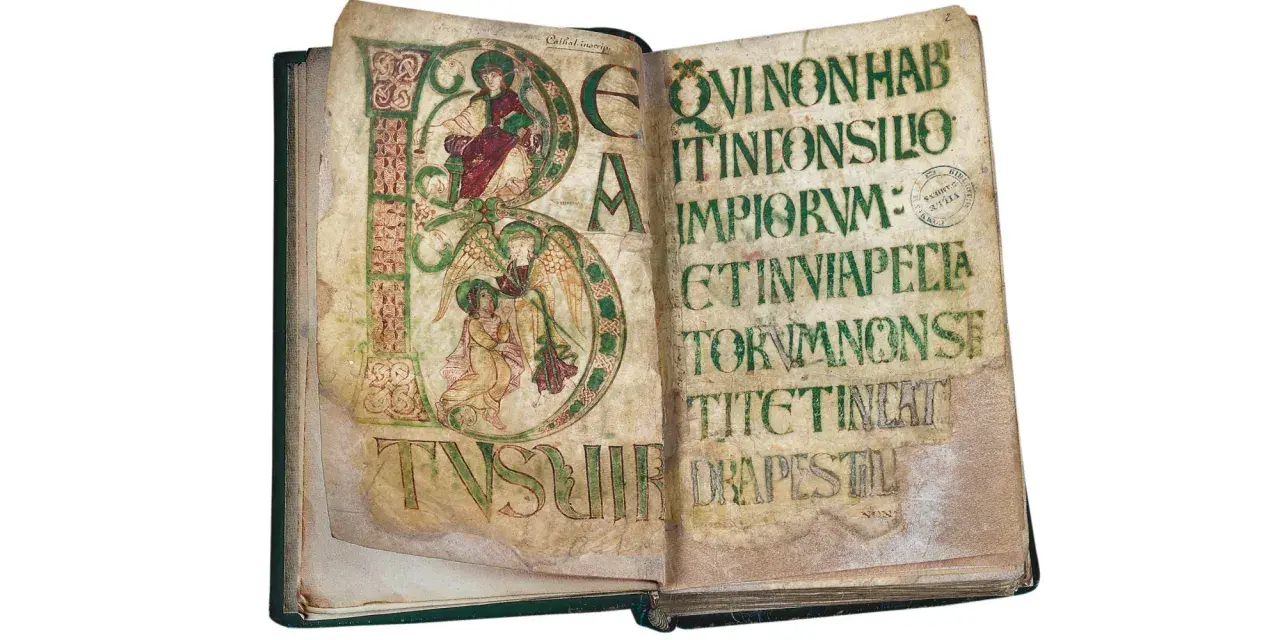 2
B E
A
TVS UIR
QVI NON HABI
IT IN CONSILIO
IMPIORVM:
ET IN VIA PECCA
TORVM NON STE
TIT ET IN CAT
DRA PESTIL